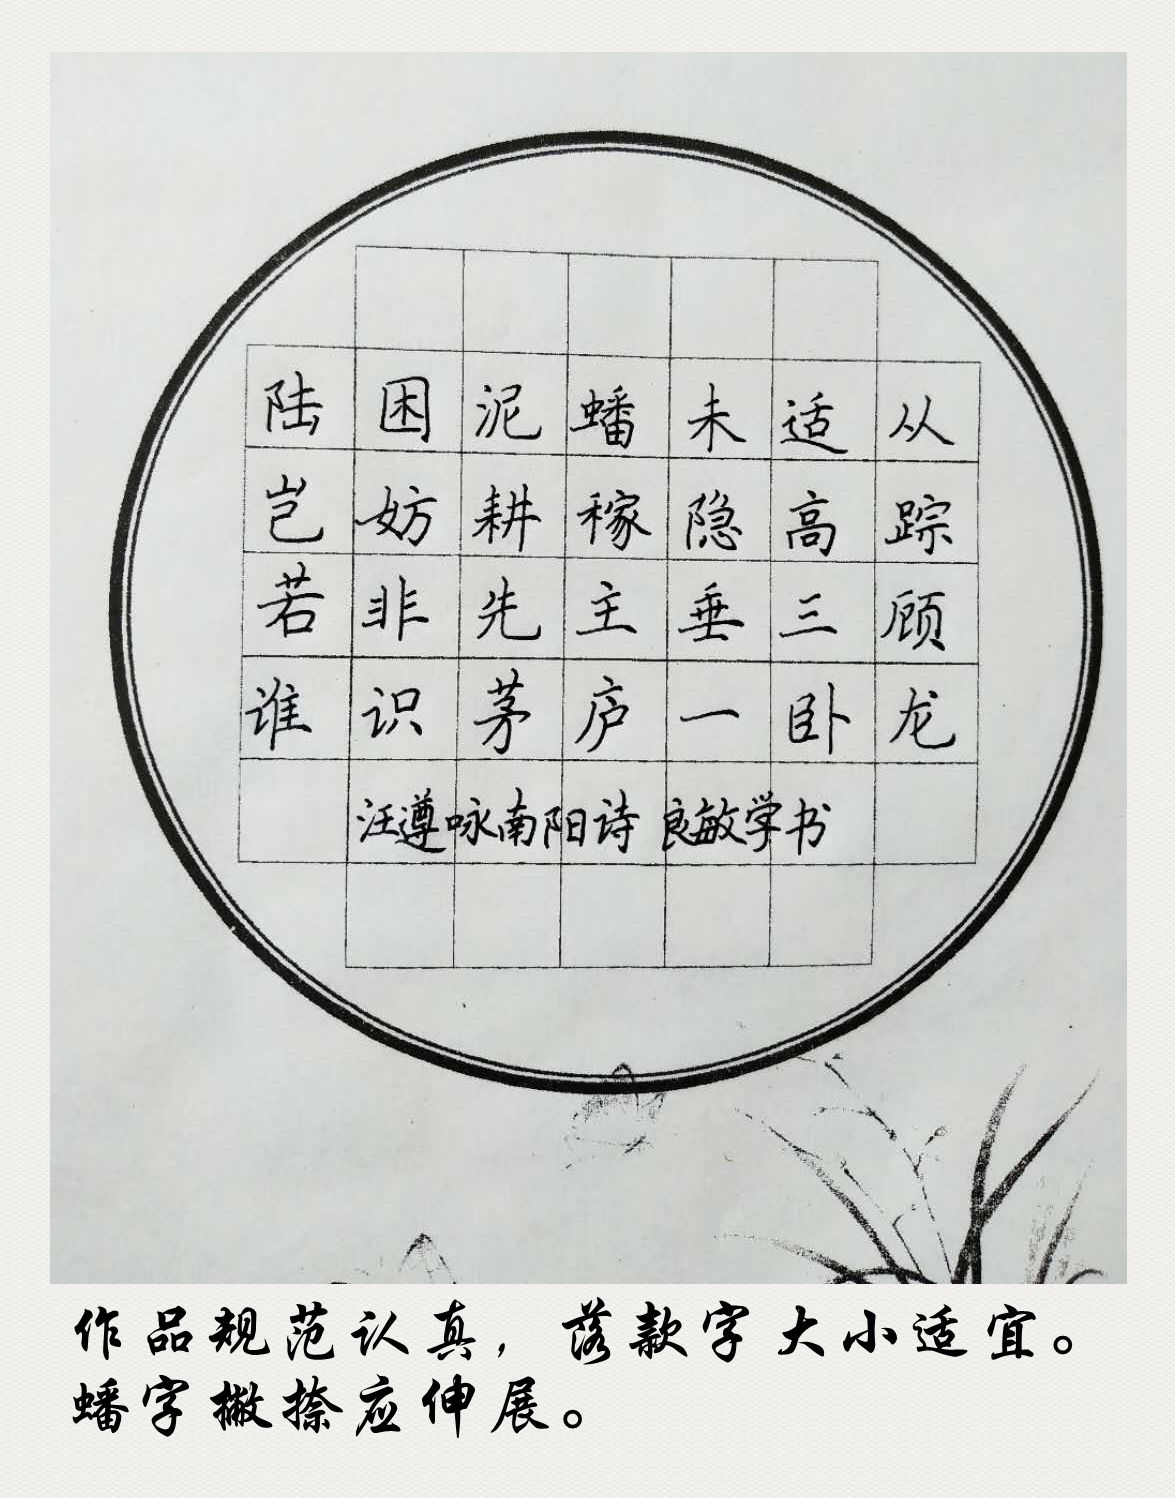 陆困泥蟠未适从
岂妨耕稼隐高踪
若非先主垂三顾
谁识茅庐一卧龙
汪遵咏南阳诗 良敏学书
作品规范认真，落款字大小适宜。
蟠字撇捺应伸展。